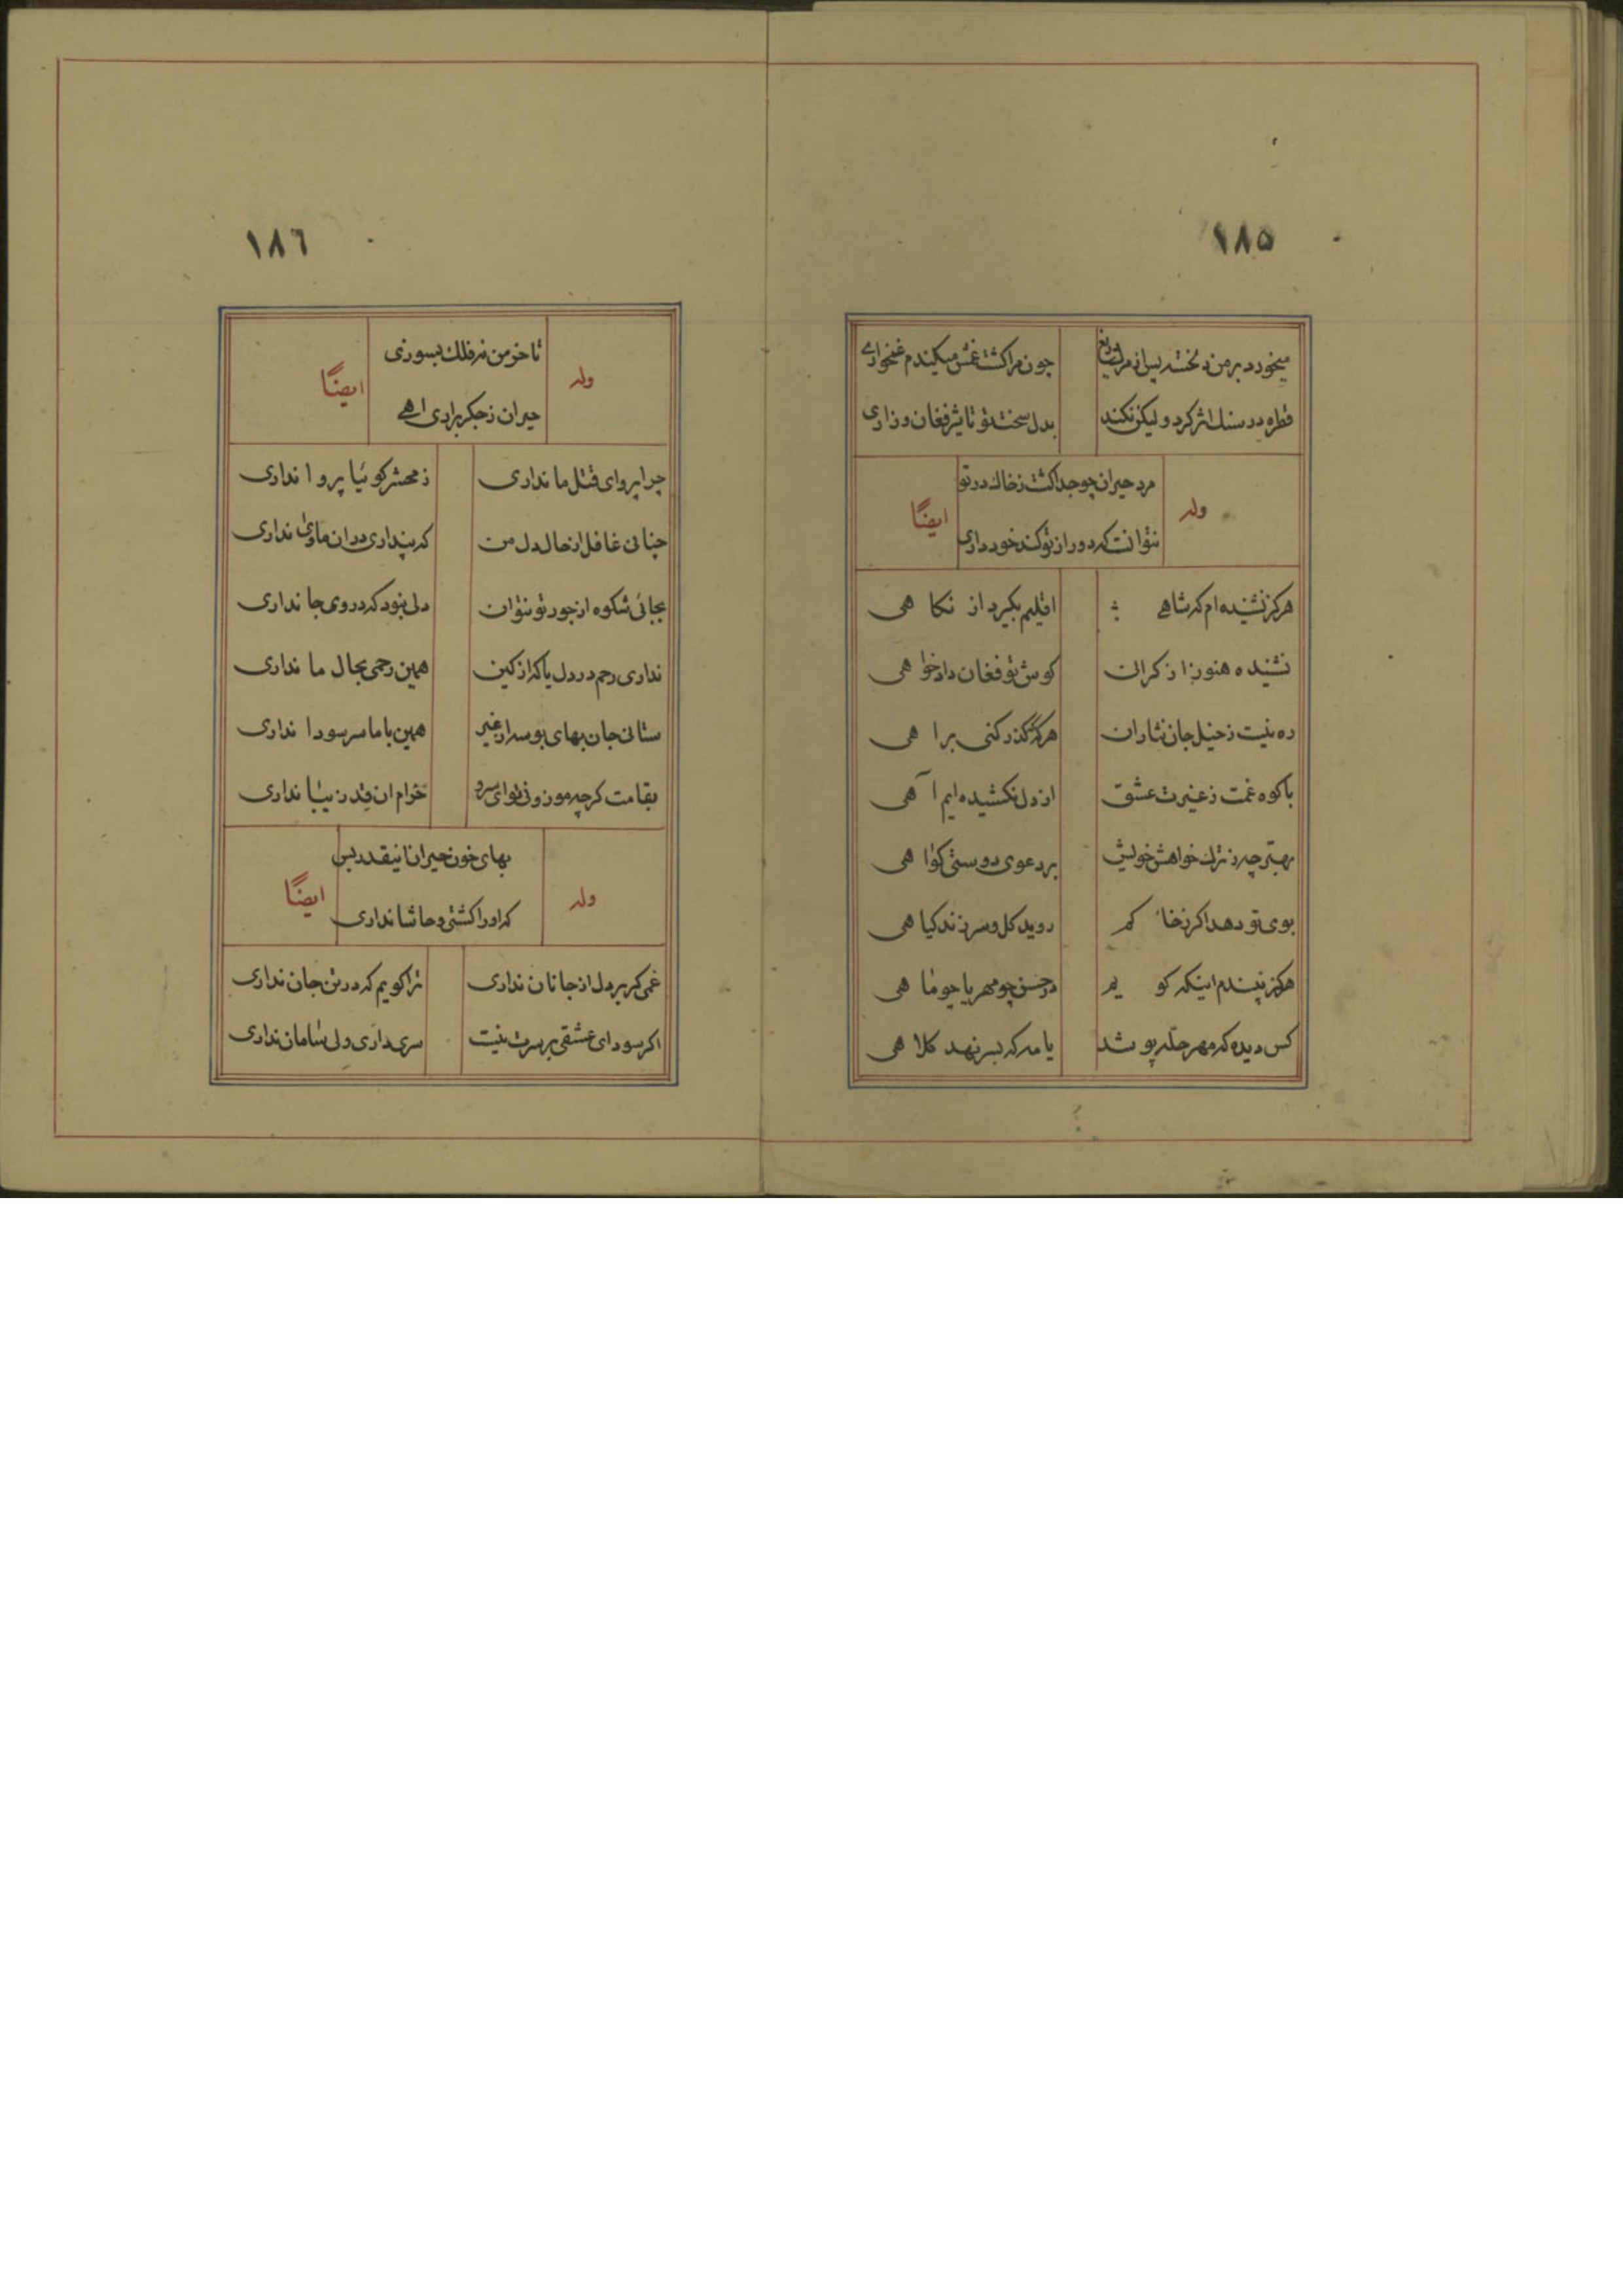 ١٨۵
میخورد بر من دلخسته پس از مرك دریغ
چون مرا كشت غمش میكندم غمخواری
قطره در سنك اثر كرد و لیكن نكند
بدل سخت تو تاثیر فغان و زاری
وله
مرد حیران چو جدا كشت ز خاك در تو
نتوانست كه دور از تو كند خود داری
ایضًا
هركز نشنیده ام كه شاهی
اقلیم بكیرد از نكاهی
نشنیده هنوز از كران
كوش تو فغان داد خواهی
ره نیست ز خیل جان نثاران
هركه كذر كنی براهی
با كوه غمت ز غیرت عشق
از دل نكشیده ایم آهی
بهتر چه ز ترك خواهش خویش
بر دعوی دوستی كواهی
بوی تو دهد اكر ز خاكم
روید كل و سر زند كیاهی
هركز نپسندم اینكه كویم
در حسن چو مهر یا چو ماهی
كس دیده كه مهر حله پوشد
یا مه كه بسر نهد كلاهی
١٨٦
وله
تا خرمن نه فلك بسوزی
حیران ز جكر براری اهی
ایضًا
چرا پروای قتل ما نداری
ز محشر كوئیا پروا نداری
چنانی غافل از حال دل من
كه پنداری در ان ماوی نداری
بجائی شكوه از جور تو نتوان
دلی نبود كه در وی جا نداری
نداری رحم در دل یا كه از كین
همین رحمی بحال ما نداری
ستانی جان بهای بوسه از غیر
همین با ما سر سودا نداری
بقامت كرچه موزونی تو ای سرو
خرام ان قد زیبا نداری
وله
بهای خون حیران اینقدر بس
كه او را كشتی و حاشا نداری
ایضًا
غمی كر بر دل از جانان نداری
ترا كویم كه در تن جان نداری
اكر سودای عشقی بر سرت نیست
سری داری ولی سامان نداری